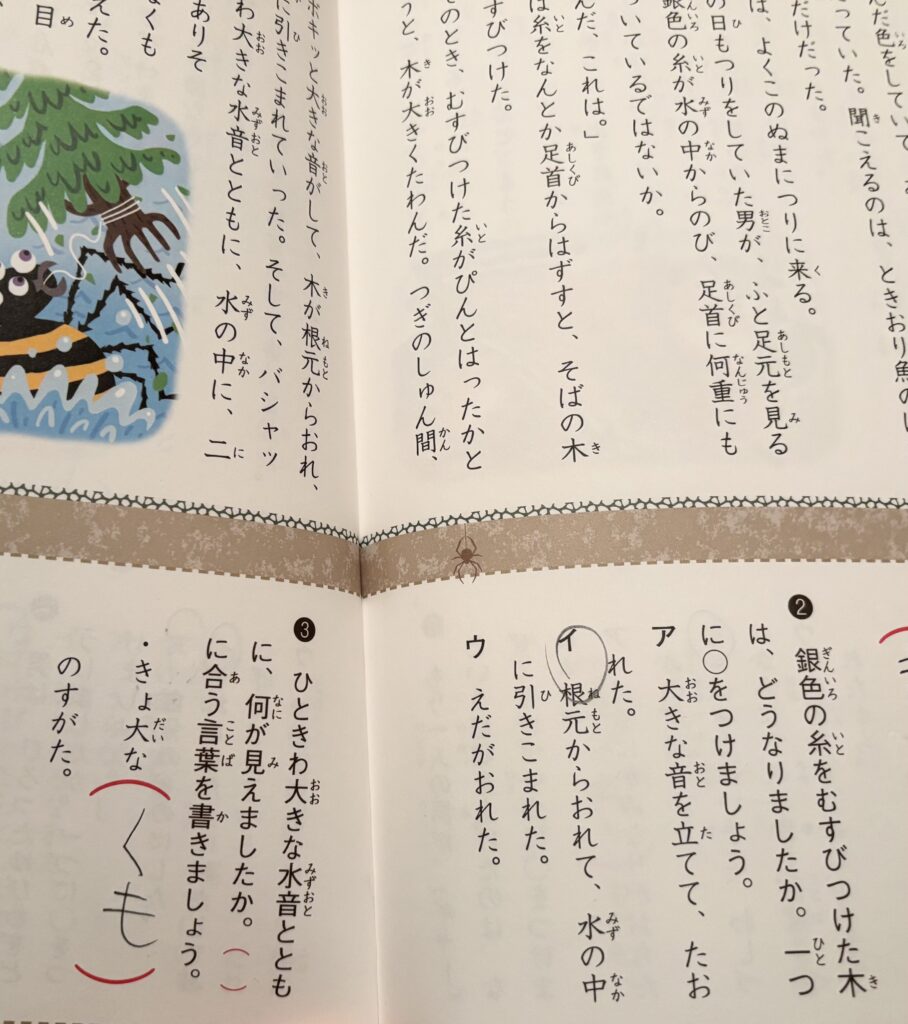 んだ色をしていて、
っていた。聞こえるのは、ときおり魚の
だけだった。
は、よくこのぬまにつりに来る。
の日もつりをしていた男が、ふと足元を見る
銀色の糸が水の中からのび、足首に何重にも
ついているではないか。
んだ、これは。」
は糸をなんとか足首からはずすと、そばの木
すびつけた。
そのとき、むすびつけた糸がぴんとはったかと
うと、木が大きくたわんだ。つぎのしゅん間、
ボキッと大きな音がして、木が根元からおれ、
に引きこまれていった。そして、バシャッ
わ大きな水音とともに、水の中に、二
ありそ
なくも
えた。
目
❷ 銀色の糸をむすびつけた木
は、どうなりましたか。一つ
に○をつけましょう。
ア 大きな音を立てて、たお
れた。
イ 根元からおれて、水の中
に引きこまれた。
ウ えだがおれた。
❸ ひときわ大きな水音ととも
に、何が見えましたか。（ ）
に合う言葉を書きましょう。
・きょ大な（くも）
のすがた。